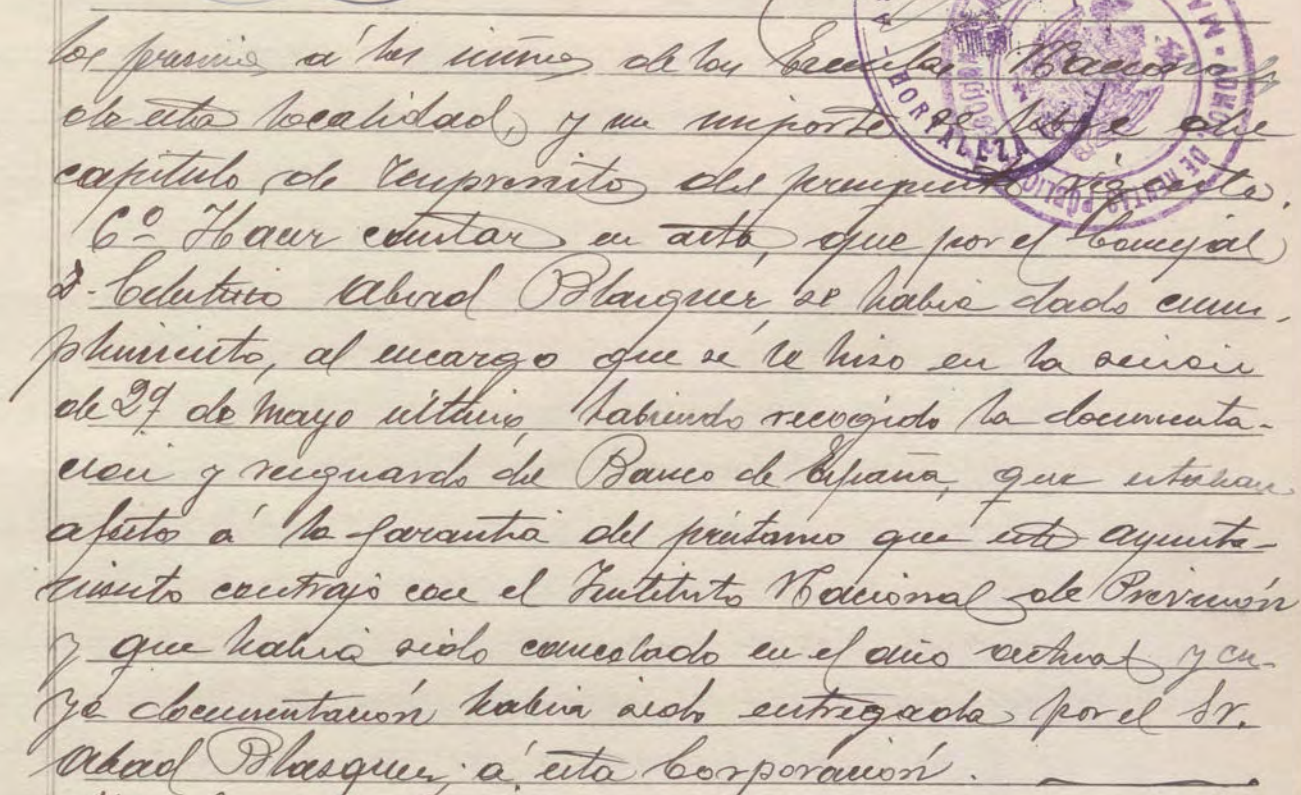 los premios á los niños de las Escuelas Nacionales
de esta localidad, y su importe se libre del
capitulo de Imprevistos del presupuesto vigente.
6º Hacer constar en acta, que por el Concejal
D. Celestino Abad Blasquez, se habia dado cum-
plimiento, al encargo que se le hizo en la sesion
de 29 de Mayo ultimo, habiendo recogido la documenta-
cion y resguardo del Banco de España, que estaban
afectos á la garantia del préstamo que este Ayunta-
miento contrajo con el Instituto Nacional de Previsión
y que habia sido cancelado en el año actual y cu-
ya documentación habia sido entregada por el Sr.
Abad Blasquez, á esta Corporación.
HORTALEZA
ADMON DE RENTAS PÚBLIC